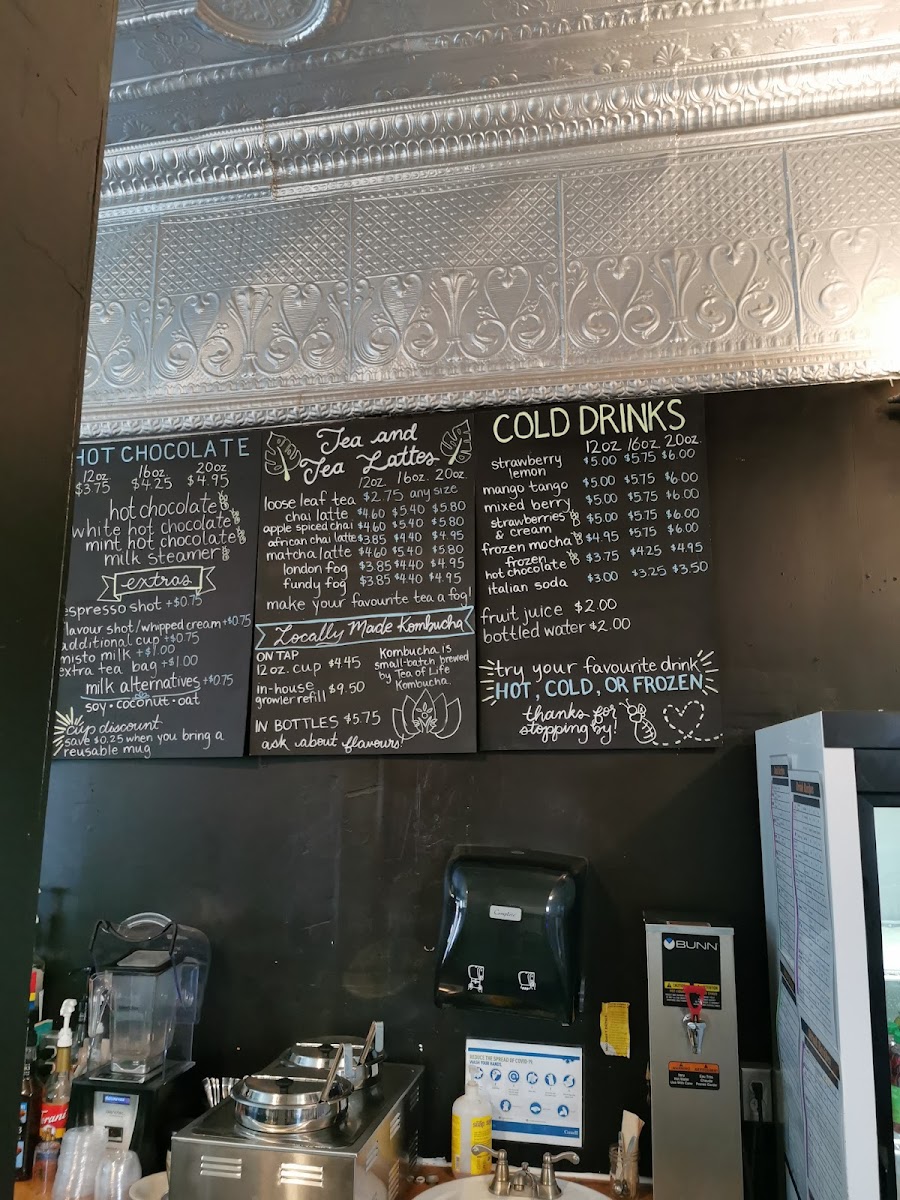 HOT CHOCOLATE
12oz. 16oz. 20oz
$3.75 $4.25 $4.95
hot chocolate
white hot chocolate
mint hot chocolate
milk steamer
extras
espresso shot +$0.75
flavour shot/whipped cream +$0.75
additional cup +$0.75
misto milk +$1.00
extra tea bag +$1.00
milk alternatives +$0.75
soy • coconut • oat
cup discount
save $0.25 when you bring a
reusable mug
Tea and
Tea Lattes
12oz. 16oz. 20oz.
loose leaf tea $2.75 any size
chai latte $4.60 $5.40 $5.80
apple spiced chai $4.60 $5.40 $5.80
african chai latte $3.85 $4.40 $4.95
matcha latte $4.60 $5.40 $5.80
london fog $3.85 $4.40 $4.95
fundy fog $3.85 $4.40 $4.95
make your favourite tea a fog!
Locally Made Kombucha
ON TAP
12oz. cup $4.45
in-house
growler refill $9.50
IN BOTTLES $5.75
ask about flavours!
Kombucha is
small-batch brewed
by Tea of Life
Kombucha.
COLD DRINKS
12oz 16oz 20oz.
strawberry
lemon $5.00 $5.75 $6.00
mango tango $5.00 $5.75 $6.00
mixed berry $5.00 $5.75 $6.00
strawberries
& cream $5.00 $5.75 $6.00
frozen mocha $4.95 $5.75 $6.00
frozen
hot chocolate $3.75 $4.25 $4.95
italian soda $3.00 $3.25 $3.50
fruit juice $2.00
bottled water $2.00
try your favourite drink
HOT, COLD, OR FROZEN
thanks for
stopping by!
BUNN
REDUCE THE SPREAD OF COVID-19
WASH YOUR HANDS
Canada